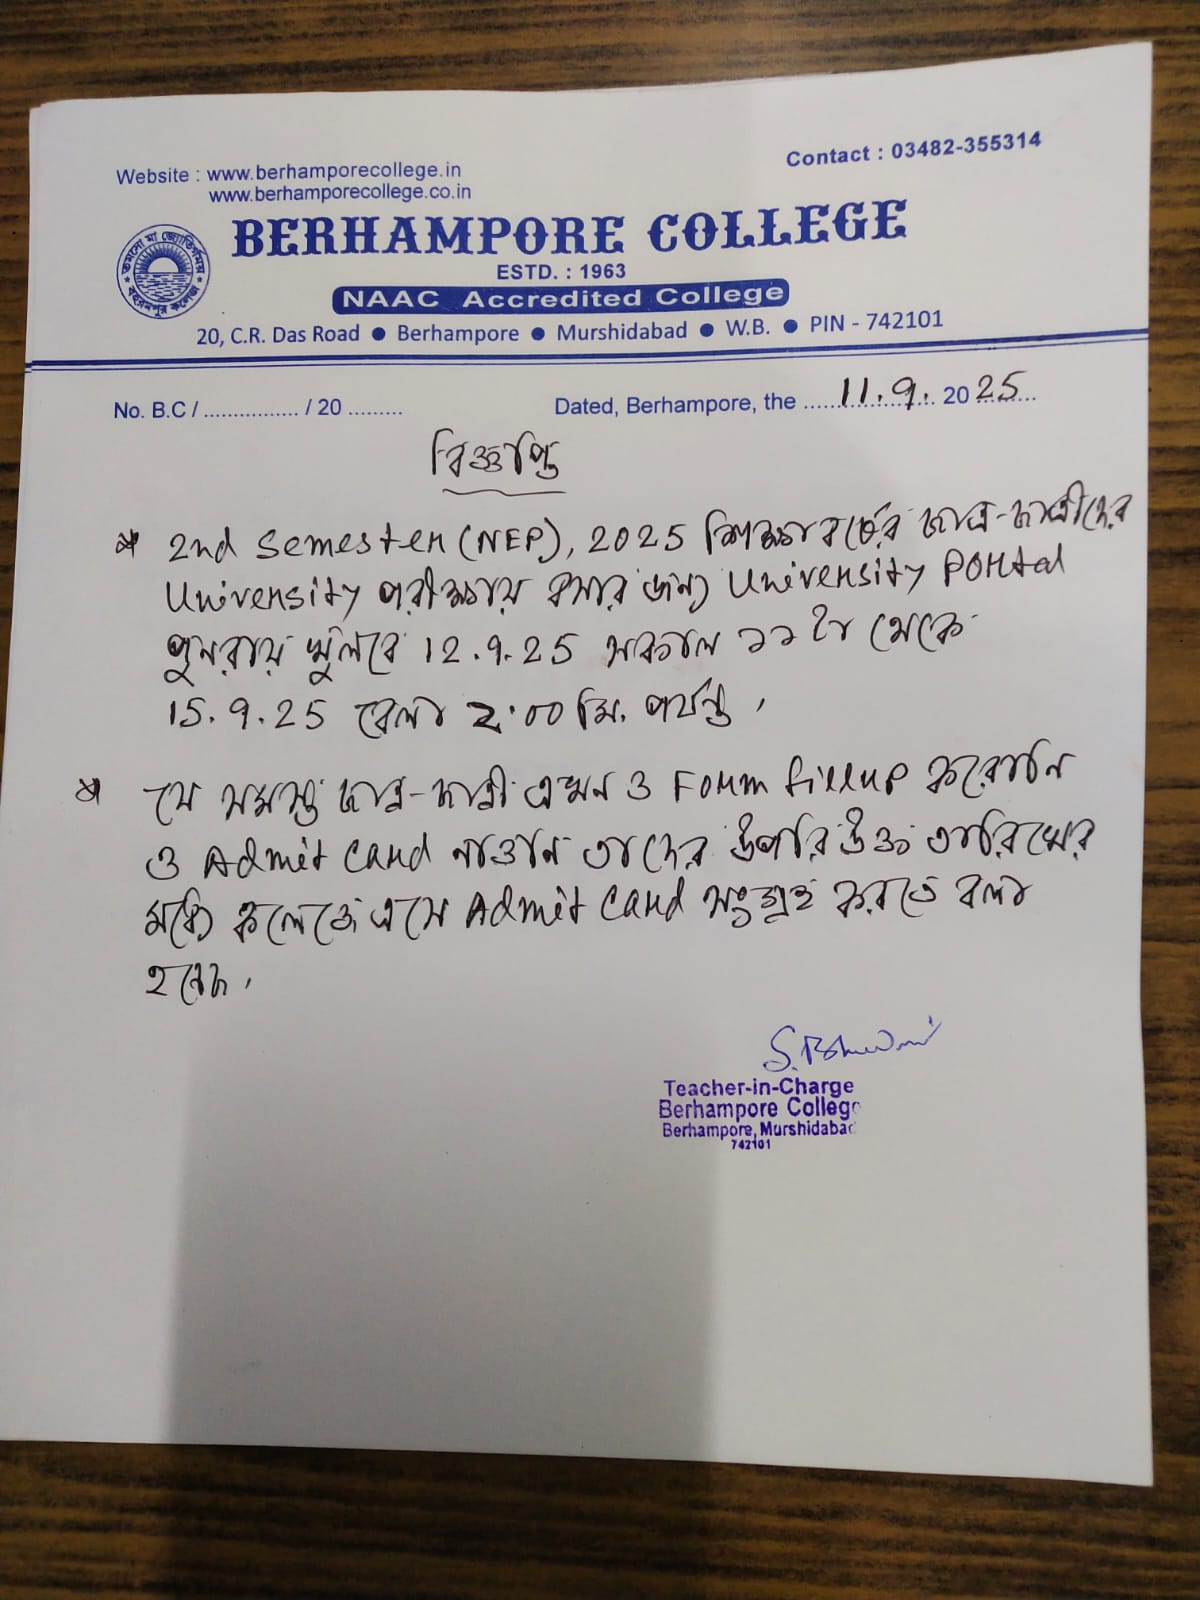 Website : www.berhamporecollege.in
www.berhamporecollege.co.in
Contact : 03482-355314
তমসো মা জ্যোতির্গময়
বহরমপুর কলেজ
BERHAMPORE COLLEGE
ESTD. : 1963
NAAC Accredited College
20, C.R. Das Road ● Berhampore ● Murshidabad ● W.B. ● PIN - 742101
No. B.C / ................ / 20 .........
Dated, Berhampore, the 11.9. 2025
বিজ্ঞপ্তি
* 2nd Semester (NEP), 2025 শিক্ষাবর্ষের ছাত্র-ছাত্রীদের
University পরীক্ষায় বসার জন্য University Portal
পুনরায় খুলবে 12.9.25 সকাল ১১ টা থেকে
15.9.25 বেলা 2:00 মি. পর্যন্ত,
* যে সমস্ত ছাত্র-ছাত্রী এখন ও Form fillup করেনি
ও Admit Card নাওনি তাদের উপরিউক্ত তারিখের
মধ্যে কলেজে এসে Admit Card সংগ্রহ করতে বলা
হচ্ছে,
Teacher-in-Charge
Berhampore College
Berhampore, Murshidabad
742101